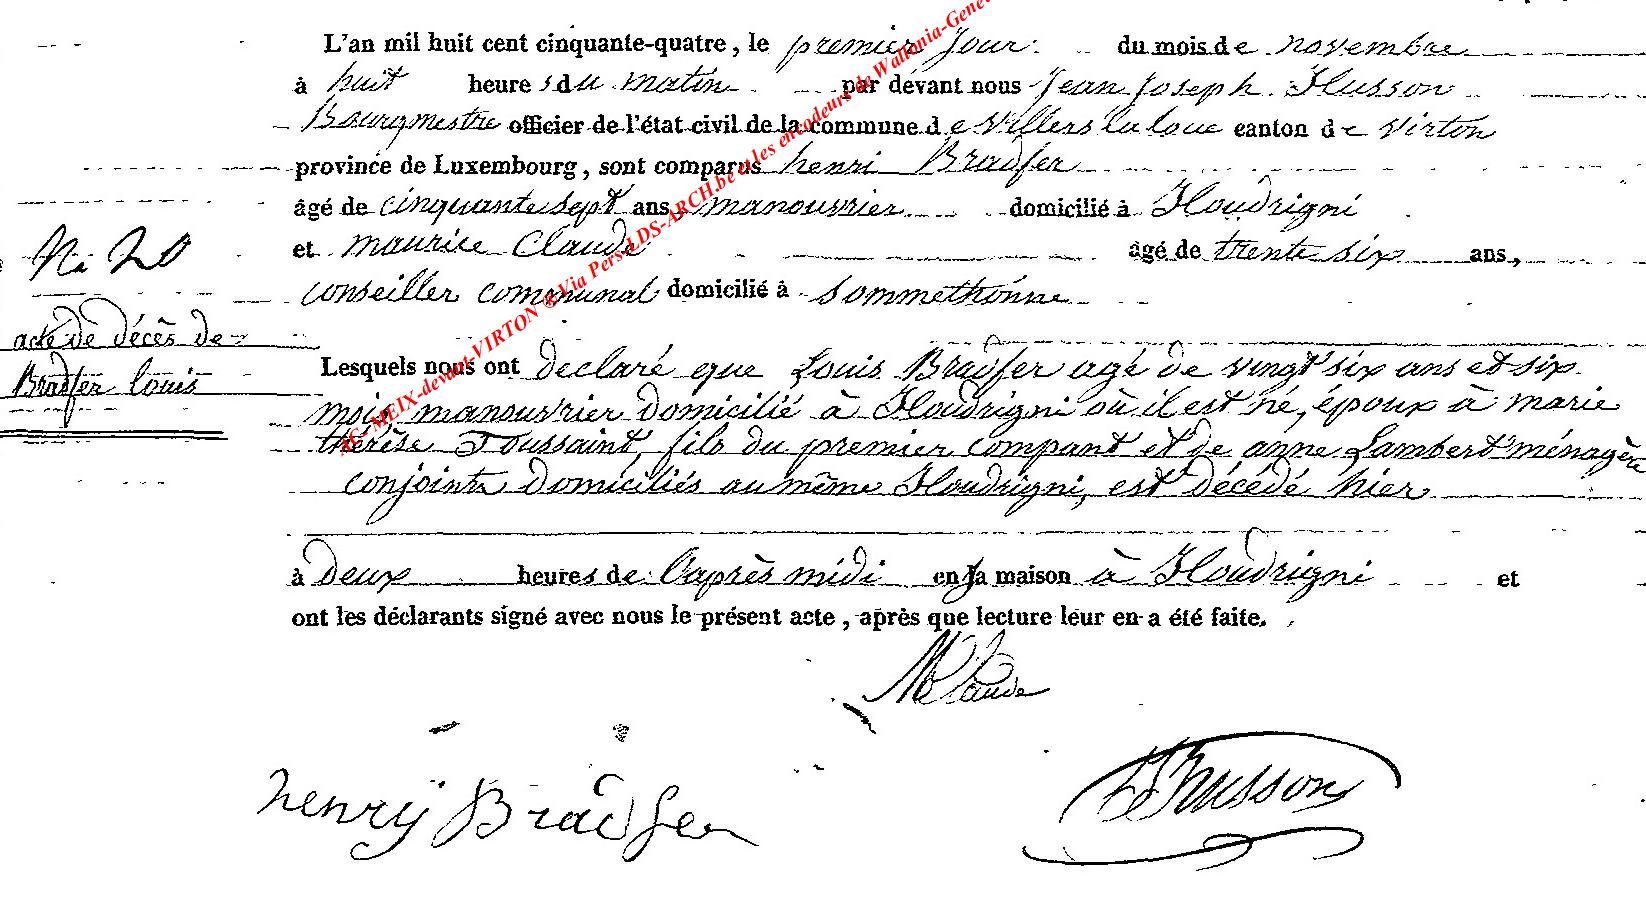 L'an mil huit cent cinquante-quatre, le premier Jour du mois de novembre
à huit heures du matin par devant nous Jean Joseph Husson
Bourgmestre officier de l'état civil de la commune de Villers la loue canton de Virton
province de Luxembourg, sont comparus henri Bradfer
âgé de cinquante sept ans manouvrier domicilié à Houdrigni
et maurice Claude âgé de trente six ans,
conseiller communal domicilié à Sommethonne
No 20
acte de décès de
Bradfer louis
Lesquels nous ont declaré que Louis Bradfer agé de vingt six ans et six
mois, manouvrier domicilié à Houdrigni où il est né, époux à marie
thérèse Toussaint, fils du premier compant et de anne Lambert ménagère
conjoints domiciliés au même Houdrigni, est décédé hier
à deux heures de l'après midi en sa maison à Houdrigni et
ont les déclarants signé avec nous le présent acte, après que lecture leur en a été faite.
M Claude
henrÿ Bradfer
JJ husson
AC-MEIX-devant-VIRTON ®Via Pers-LDS-ARCH.be et les encodeurs de Wallonia-Gene